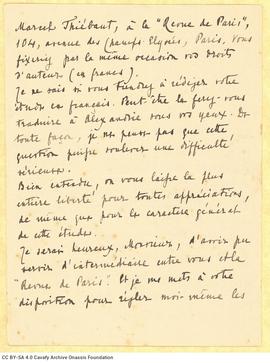 Marcel Thiébaut, à la "Revue de Paris",
104, avenue des Champs Elysées, Paris. Vous
fixerez par la même occasion vos droits
d'auteur (en francs).
Je ne sais si vous tiendrez à rédiger votre
étude en français. Peut-être la ferez-vous
traduire à Alexandrie sous vos yeux. De
toute façon, je ne pense pas que cette
question puisse soulever une difficulté
sérieuse.
Bien entendu, on vous laisse la plus
entière liberté pour toutes appréciations,
de même que pour le caractère général
de cette étude.
Je serai heureux, Monsieur, d'avoir pu
servir d'intermédiaire entre vous et la
"Revue de Paris". Et je me mets à votre
disposition pour régler moi-même les
CC BY-SA 4.0 Cavafy Archive Onassis Foundation